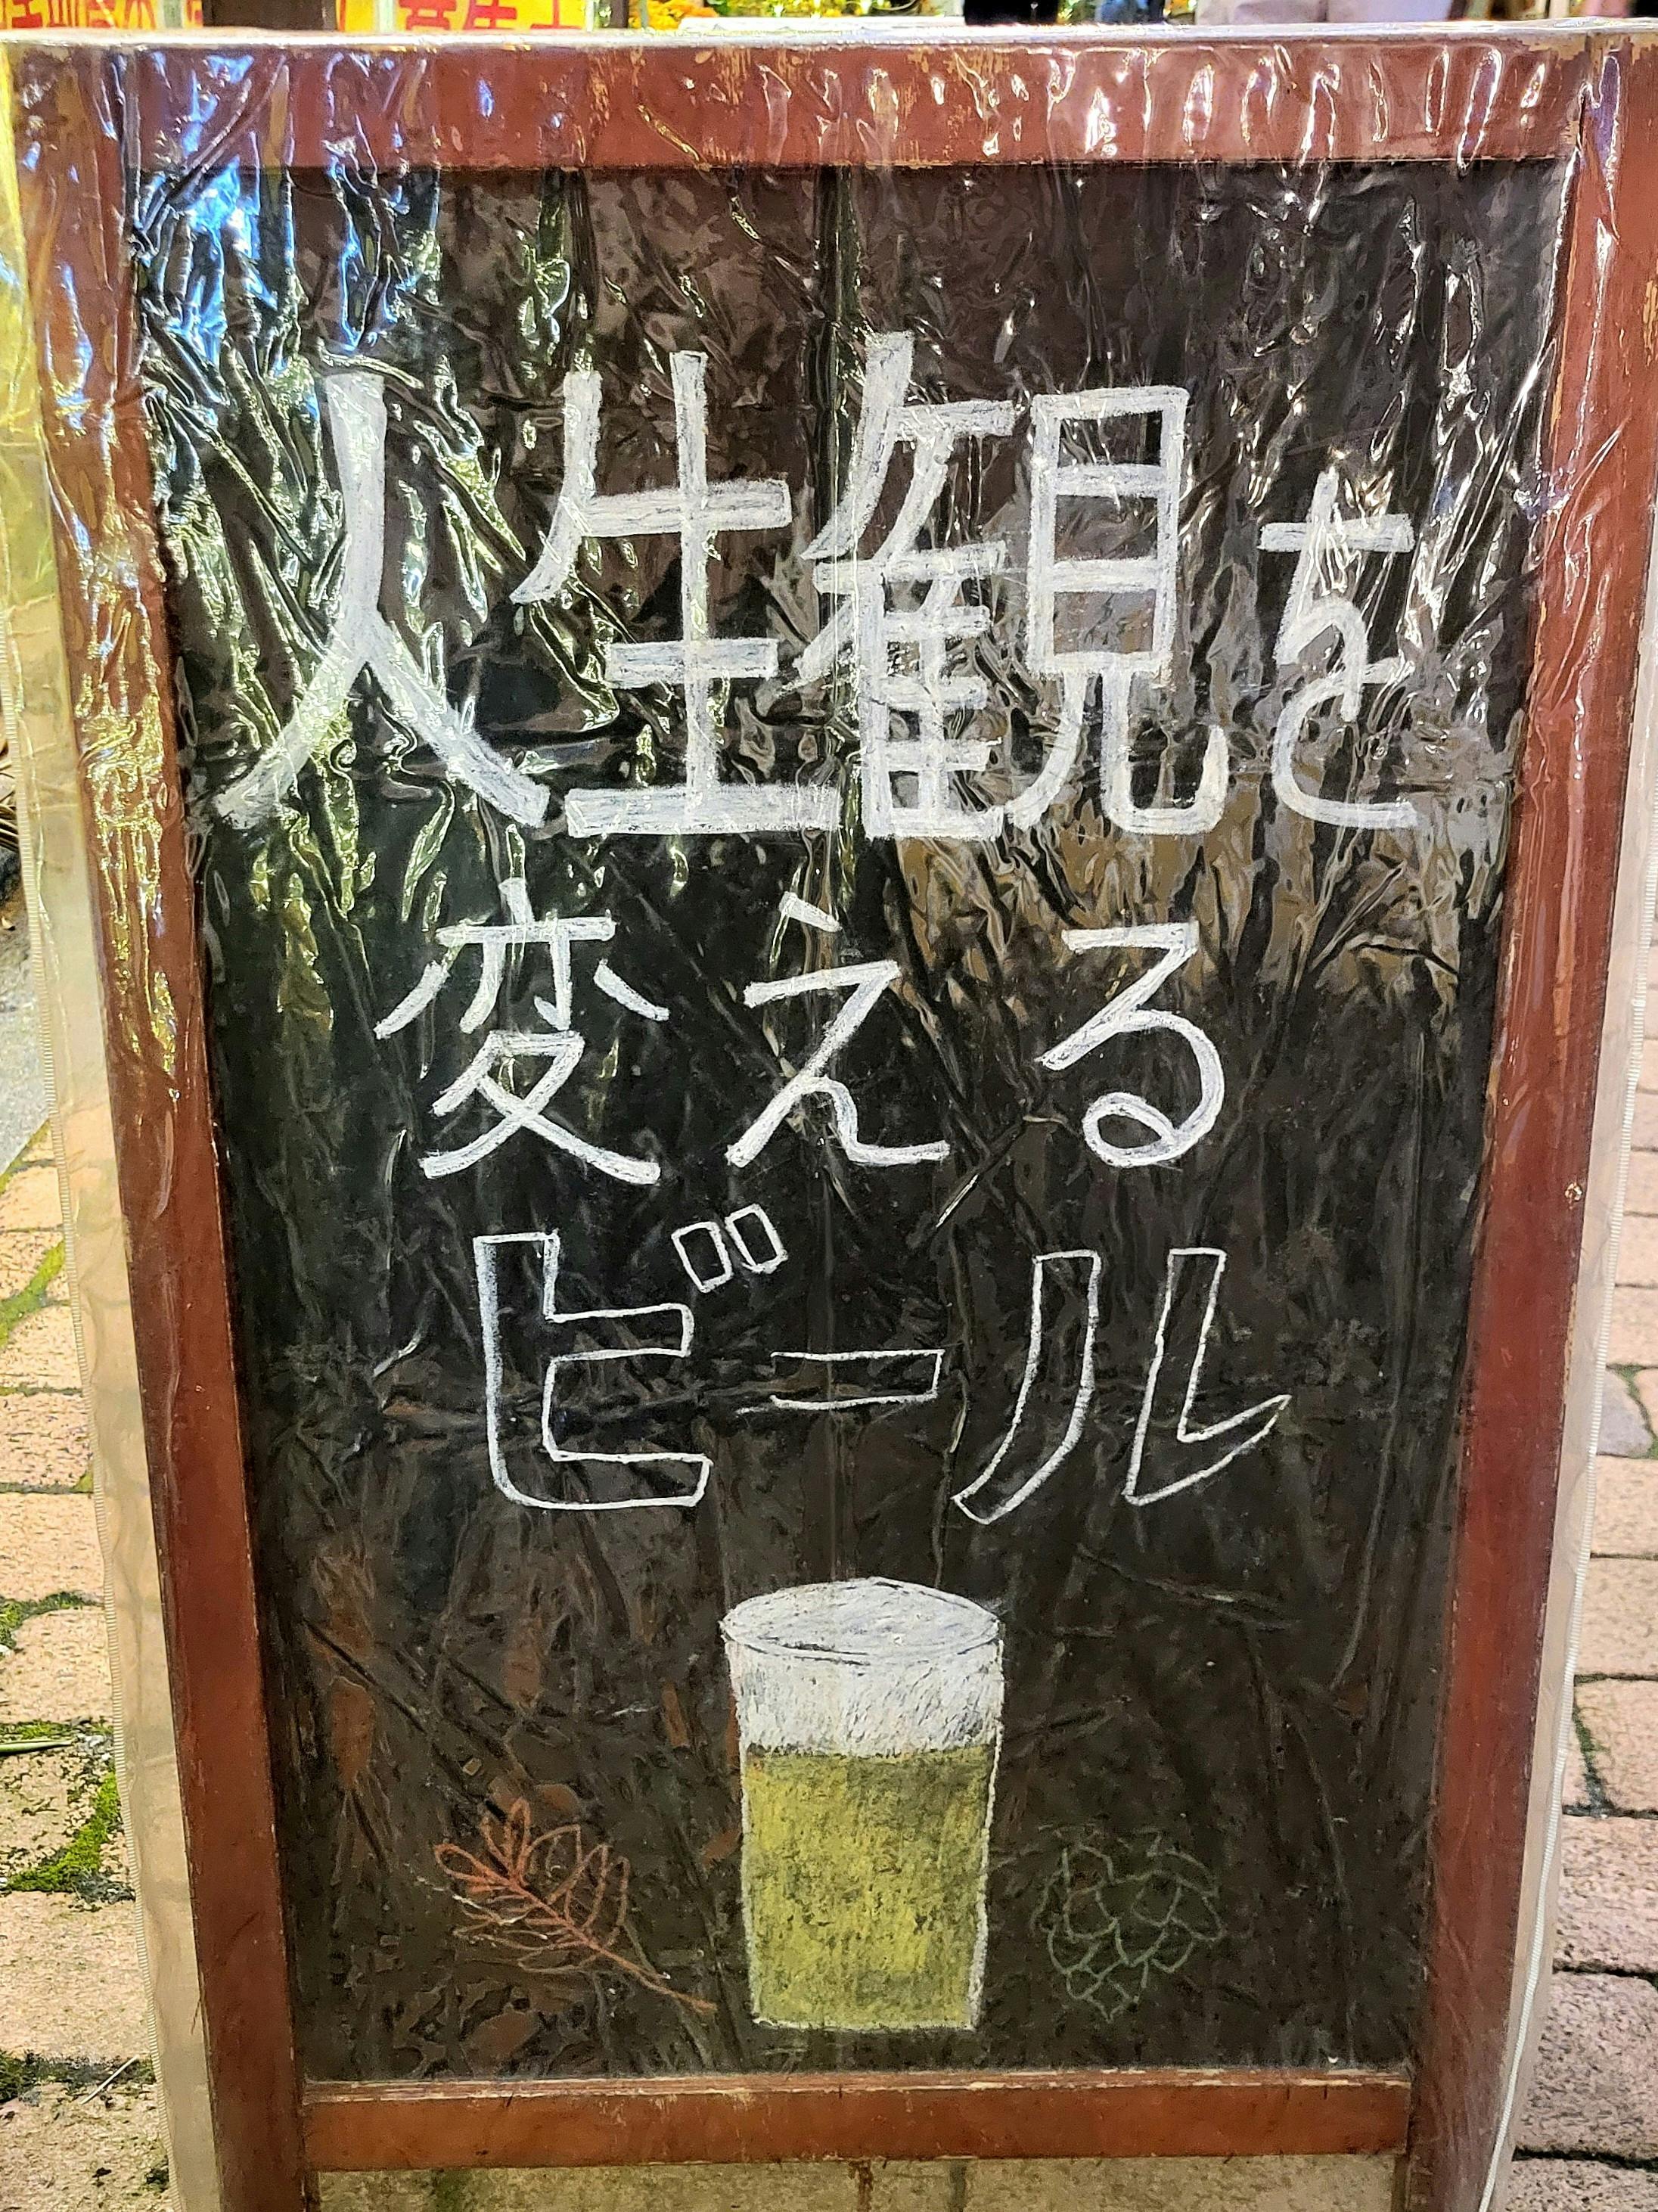 人生観を
変える
ビール